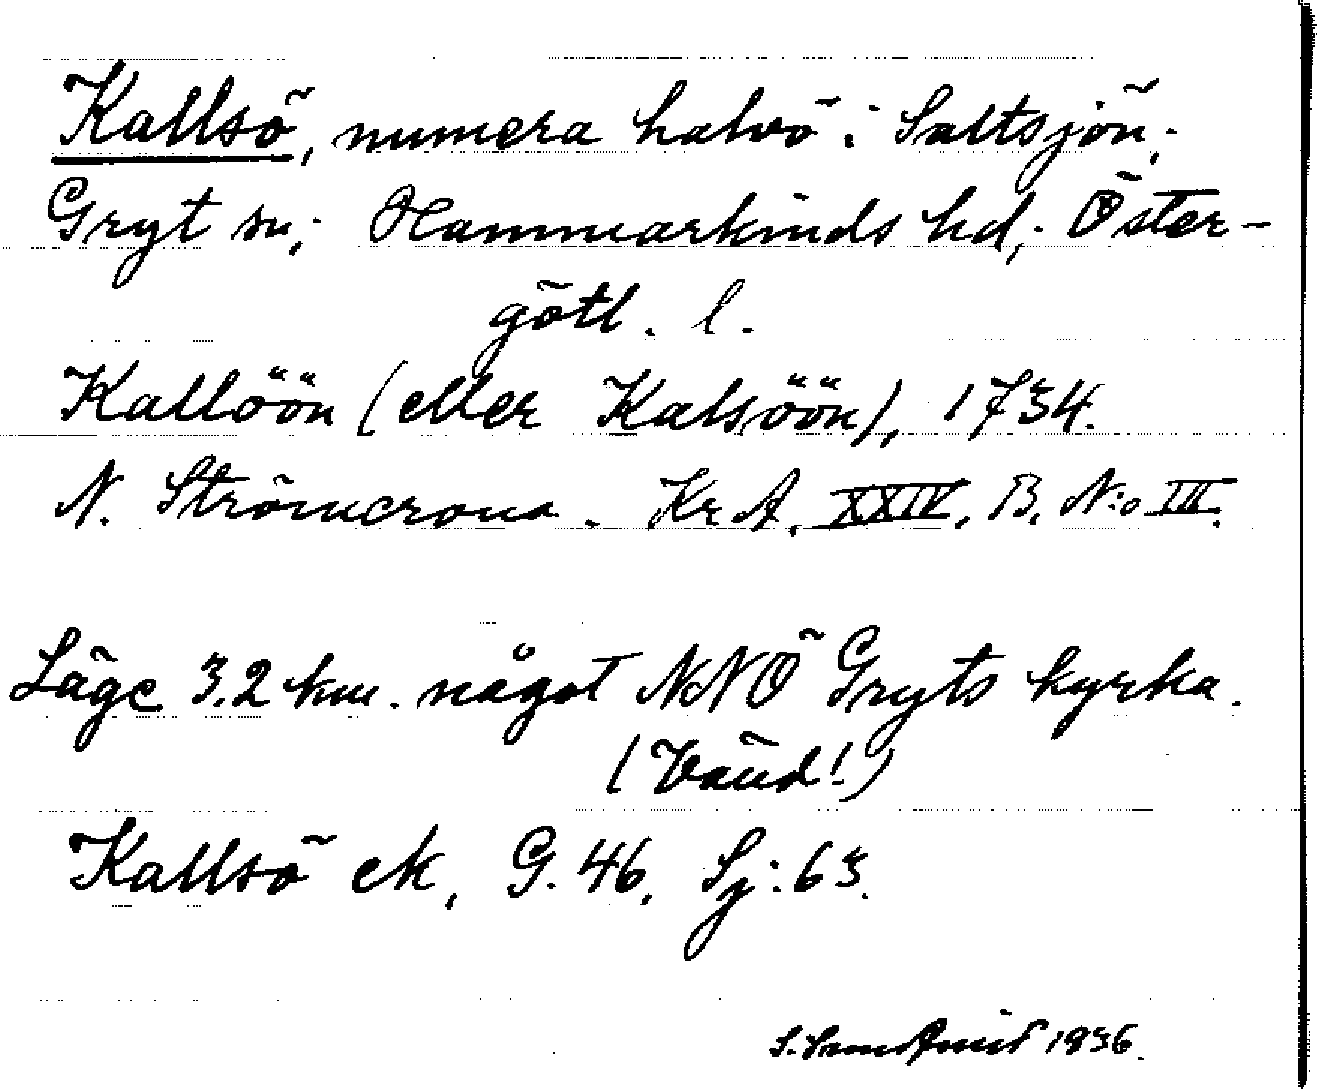 Kallsö, numera halvö i Saltsjön;
Gryt sn; Hammarkinds hd; Öster-
götl. l.
Kallöön (eller Kalsöön), 1734.
N. Strömcrona. Kr. A. XXIV. B. N:o III.
Läge 3.2 km. något NNÖ Gryts kyrka.
(Vänd!)
Kallsö ek, G. 46. Sj: 63.
1936.